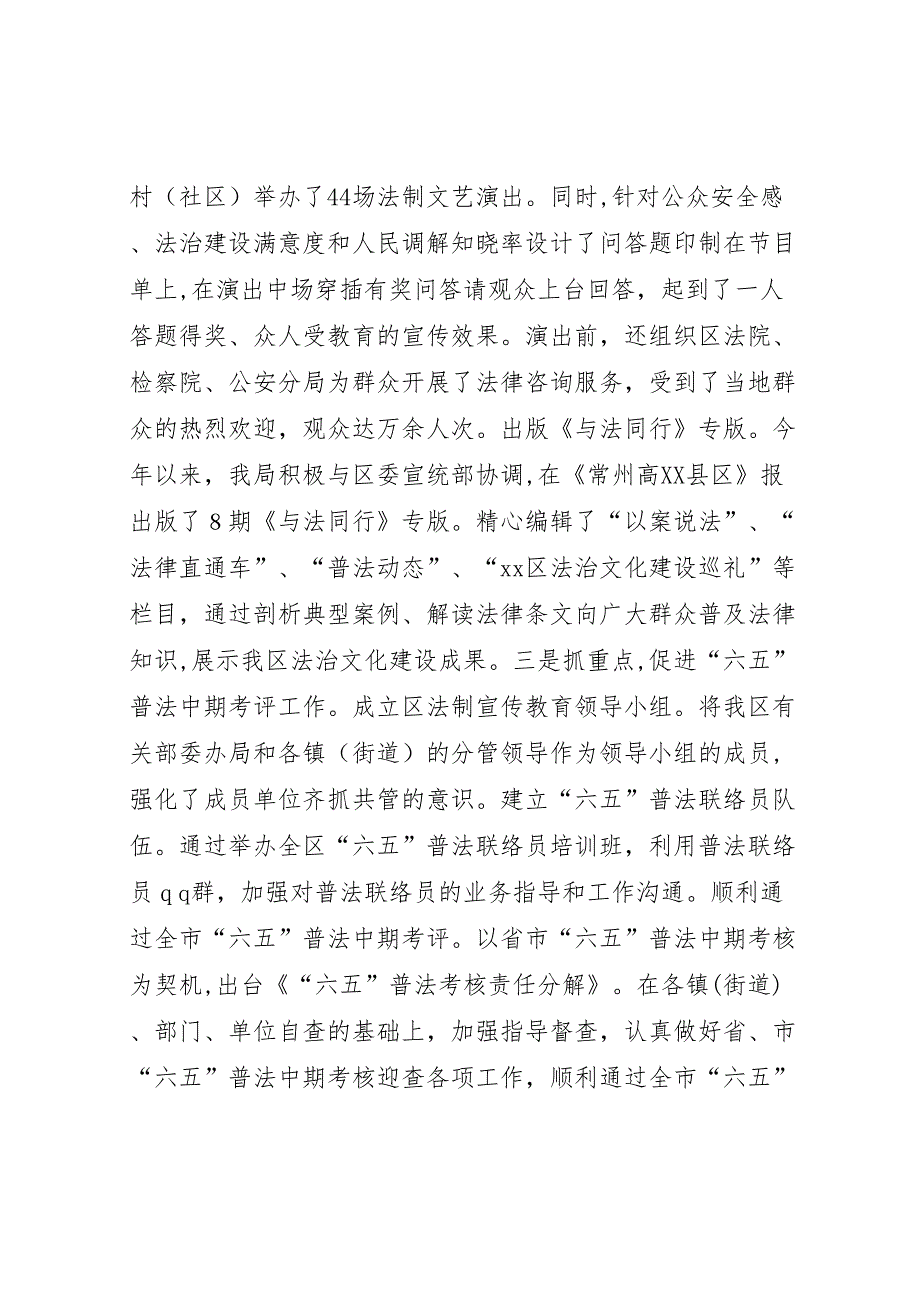 村（社区）举办了44场法制文艺演出。同时,针对公众安全感
、法治建设满意度和人民调解知晓率设计了问答题印制在节目
单上,在演出中场穿插有奖问答请观众上台回答，起到了一人
答题得奖、众人受教育的宣传效果。演出前，还组织区法院、
检察院、公安分局为群众开展了法律咨询服务，受到了当地群
众的热烈欢迎，观众达万余人次。出版《与法同行》专版。今
年以来，我局积极与区委宣统部协调,在《常州高XX县区》报
出版了８期《与法同行》专版。精心编辑了“以案说法”、“
法律直通车”、“普法动态”、“xx区法治文化建设巡礼”等
栏目，通过剖析典型案例、解读法律条文向广大群众普及法律
知识,展示我区法治文化建设成果。三是抓重点,促进“六五”
普法中期考评工作。成立区法制宣传教育领导小组。将我区有
关部委办局和各镇（街道）的分管领导作为领导小组的成员,
强化了成员单位齐抓共管的意识。建立“六五”普法联络员队
伍。通过举办全区“六五”普法联络员培训班，利用普法联络
员ｑq群，加强对普法联络员的业务指导和工作沟通。顺利通
过全市“六五”普法中期考评。以省市“六五”普法中期考核
为契机,出台《“六五”普法考核责任分解》。在各镇(街道)
、部门、单位自查的基础上，加强指导督查，认真做好省、市
“六五”普法中期考核迎查各项工作，顺利通过全市“六五”